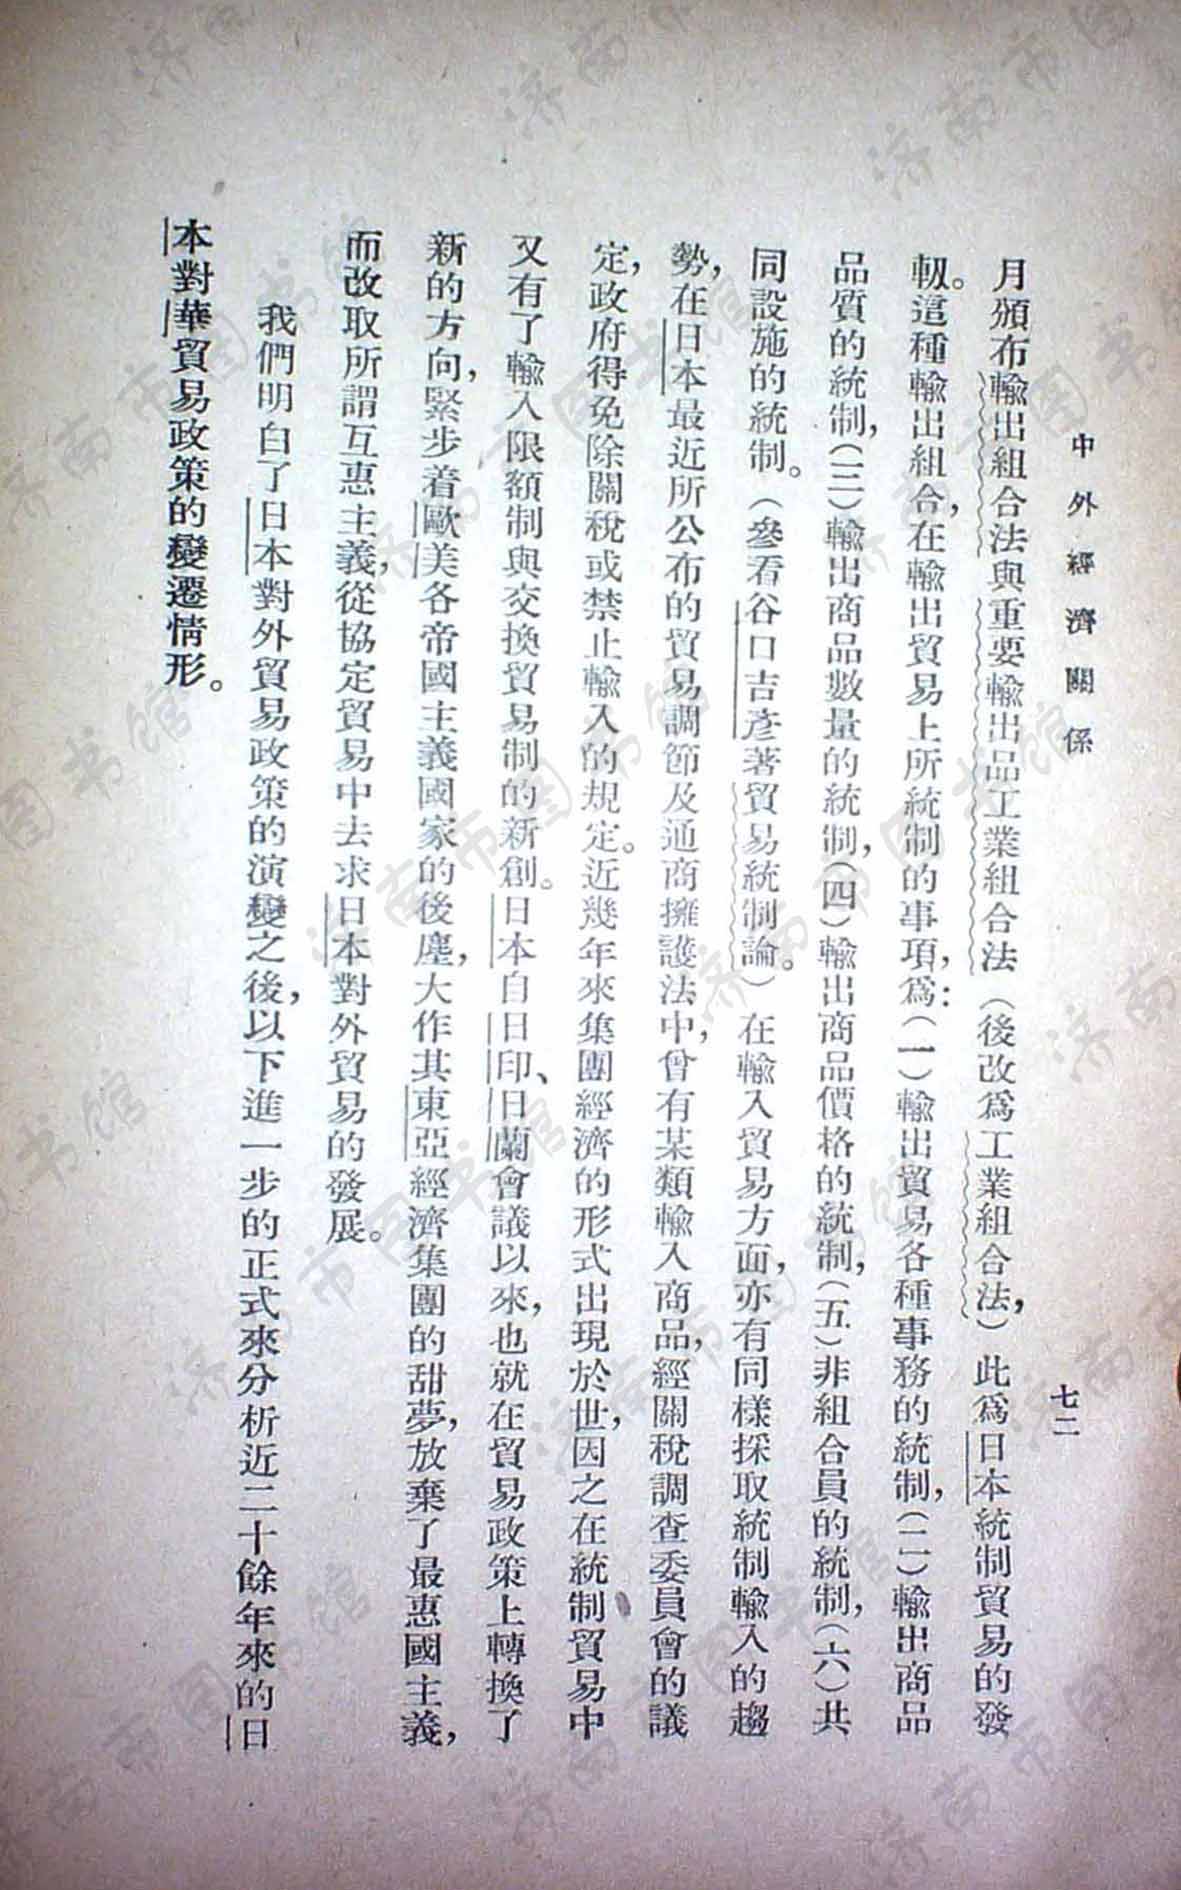 中外經濟關係
七二
月頒布輸出組合法與重要輸出品工業組合法（後改爲工業組合法），此爲日本統制貿易的發
軔。這種輸出組合，在輸出貿易上所統制的事項，爲：（一）輸出貿易各種事務的統制，（二）輸出商品
品質的統制，（三）輸出商品數量的統制，（四）輸出商品價格的統制，（五）非組合員的統制，（六）共
同設施的統制。（參看谷口吉彥著貿易統制論。）在輸入貿易方面，亦有同樣採取統制輸入的趨
勢，在日本最近所公布的貿易調節及通商擁護法中，曾有某類輸入商品，經關稅調查委員會的議
定，政府得免除關稅或禁止輸入的規定。近幾年來集團經濟的形式出現於世，因之在統制貿易中
又有了輸入限額制與交換貿易制的新創。日本自日印、日蘭會議以來，也就在貿易政策上轉換了
新的方向，緊步着歐美各帝國主義國家的後塵，大作其東亞經濟集團的甜夢，放棄了最惠國主義，
而改取所謂互惠主義，從協定貿易中去求日本對外貿易的發展。
我們明白了日本對外貿易政策的演變之後，以下進一步的正式來分析近二十餘年來的日
本對華貿易政策的變遷情形。
济南市图书馆